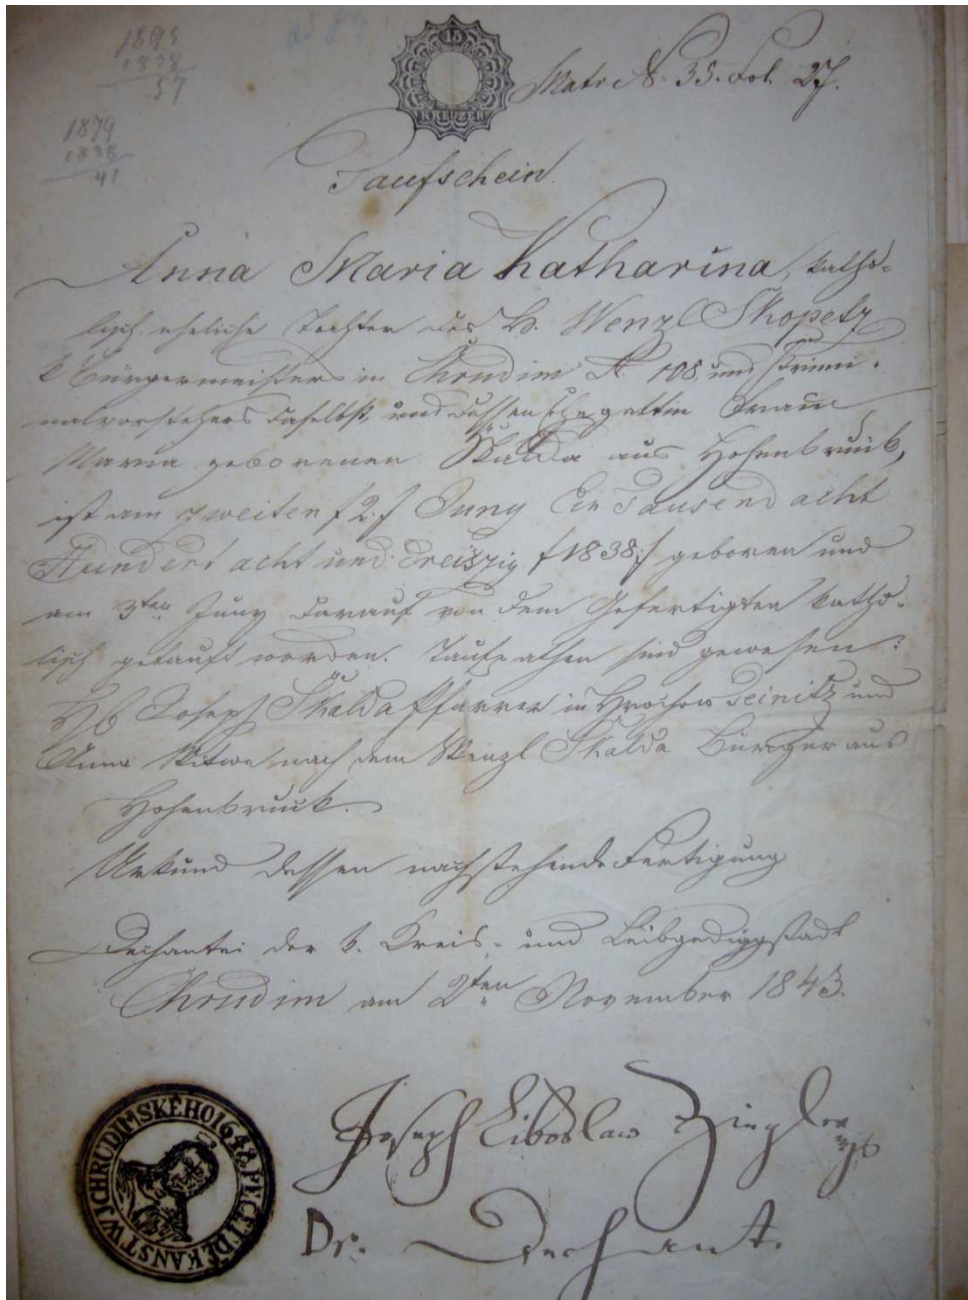 1895
1838
57
1879
1838
41
15
KREUZER
Matr. N. 35. Fol. 27.
Taufschein
Anna Maria Katharina, katho-
lisch eheliche Tochter des H. Wenzl Skopetz
Bürgermeisters in Chrudim N. 108 und Krimi-
nalvorstehers daselbst, und dessen Ehegattin Frau
Maria geborenen Skalda aus Hohenbruck,
ist am zweiten /:2:/ Juny Ein Tausend acht
Hundert acht und dreiszig /:1838:/ geboren und
am 3ten Juny darauf von dem Gefertigten katho-
lisch getauft worden. Taufpathen sind gewesen:
Joseph Skalda Pfarrer in Hrochow Teinitz und
Anna Witwe nach dem Wenzl Skalda Bürger aus
Hohenbruck.
Urkund dessen nachstehende Fertigung
Dechantei der k. Kreis- und Leibgedingstadt
Chrudim am 2ten November 1843.
Joseph Liboslaw Ziegler
Dr. Dechant.
PECET DEKANSTWJ CHRUDIMSKÉHO 1648